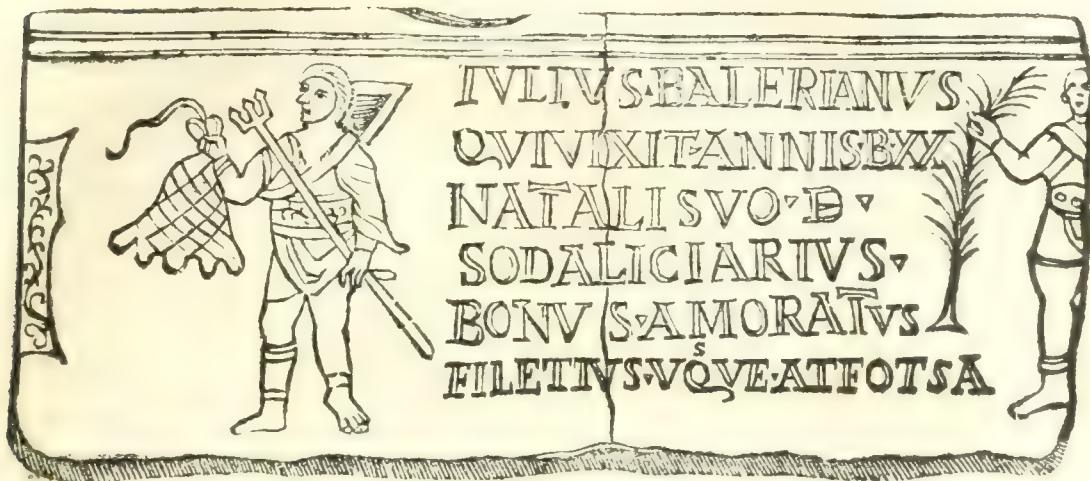 IVLIVS·BALERIANVS
QVIVIXIT·ANNIS·B·XX
NATALI SVO·D·
SODALICIARIVS·
BONVS·AMORATVS
FILETIVS·VSQVE·ATFOTSA